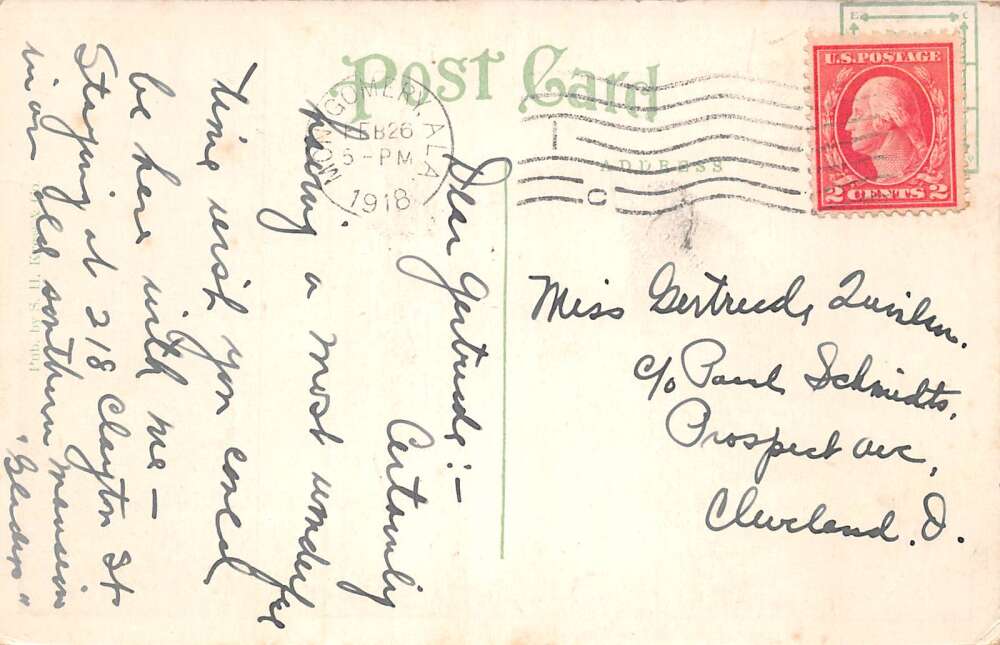 Post Card
ADDRESS
U.S. POSTAGE
2 CENTS 2
MONTGOMERY, ALA.
FEB 26
5-PM
1918
Miss Gertrude
c/o Paul Schmidts,
Prospect ave,
Cleveland. O.
Dear Gertrude:-
Certainly
having a most wonderful
time wish you could
be here with me-
Staying at 218 Clayton St.
in an old southern mansion
"Gladys"